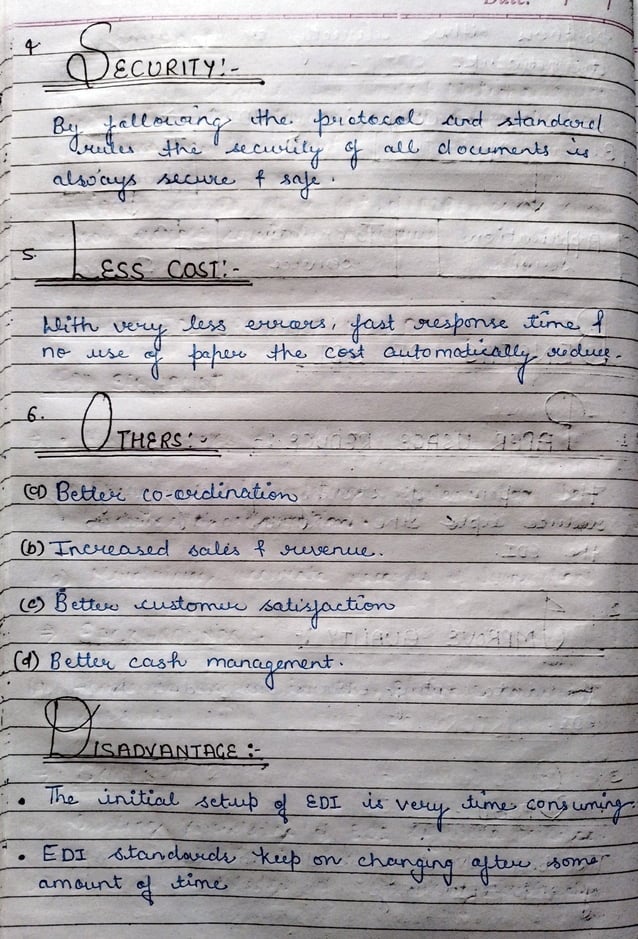 Date: / /
4 SECURITY:-
By following the protocol and standard
rules the security of all documents is
always secure & safe.
5. LESS COST:-
With very less errors, fast response time &
no use of paper the cost automatically reduce.
6. OTHERS:-
(a) Better co-ordination
(b) Increased sales & revenue.
(c) Better customer satisfaction
(d) Better cash management.
DISADVANTAGE :-
• The initial setup of EDI is very time consuming.
• EDI standards keep on changing after some
amount of time